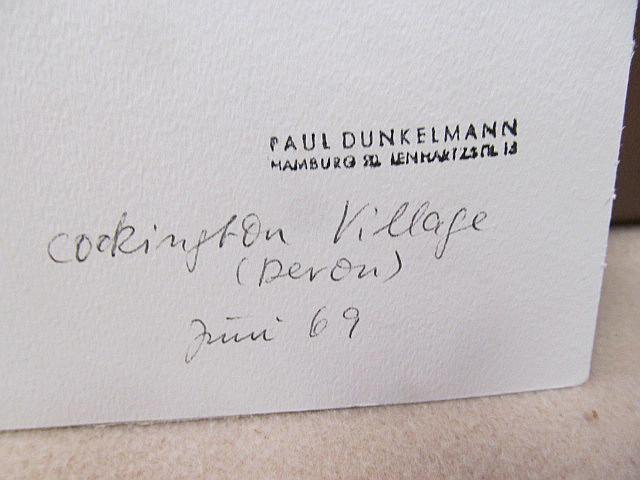 PAUL DUNKELMANN
HAMBURG 20, LENHARTZSTR. 13
Cockington Village
(Devon)
Juni 69